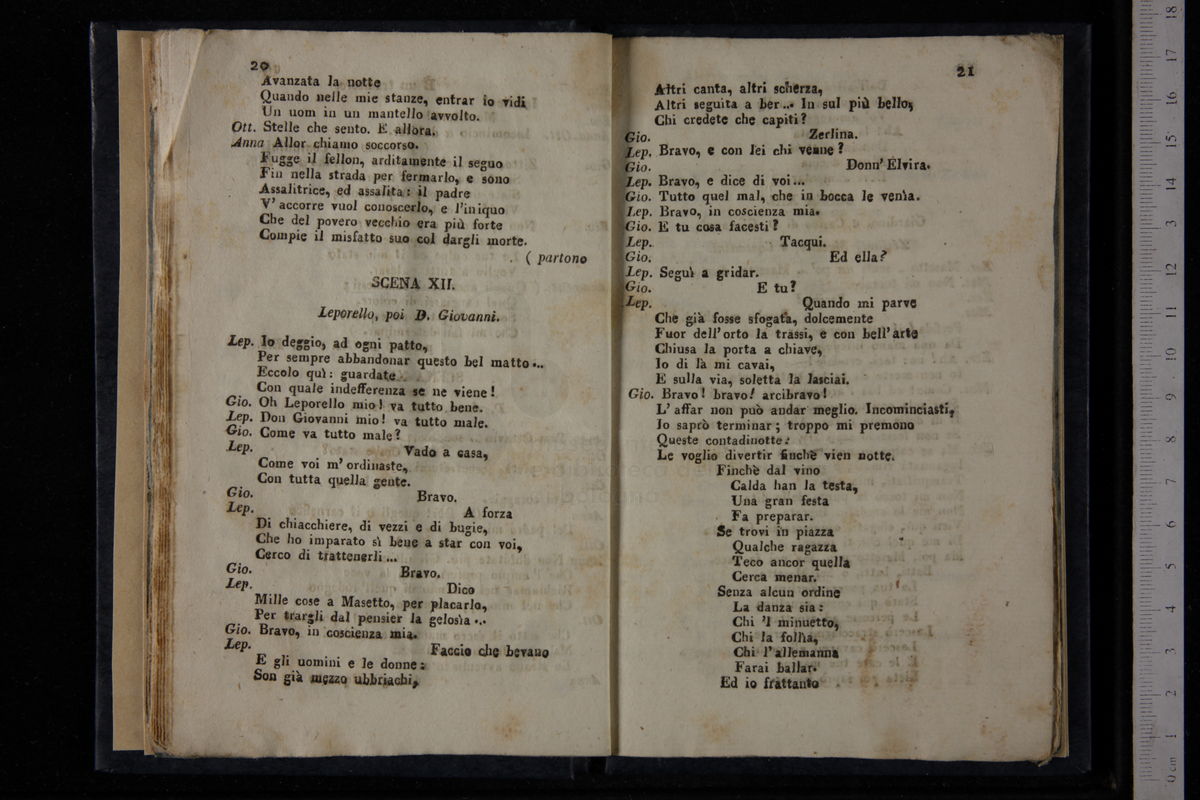 20
Avanzata la notte
Quando nelle mie stanze, entrar io vidi
Un uom in un mantello avvolto.
Ott. Stelle che sento. E allora.
Anna Allor chiamo soccorso.
Fugge il fellon, arditamente il seguo
Fin nella strada per fermarlo, e sono
Assalitrice, ed assalita: il padre
V' accorre vuol conoscerlo, e l'iniquo
Che del povero vecchio era più forte
Compie il misfatto suo col dargli morte.
( partono
SCENA XII.
Leporello, poi D. Giovanni.
Lep. Io deggio, ad ogni patto,
Per sempre abbandonar questo bel matto...
Eccolo quì: guardate
Con quale indefferenza se ne viene!
Gio. Oh Leporello mio! va tutto bene.
Lep. Don Giovanni mio! va tutto male.
Gio. Come va tutto male?
Lep. Vado a casa,
Come voi m' ordinaste,
Con tutta quella gente.
Gio. Bravo.
Lep. A forza
Di chiacchiere, di vezzi e di bugie,
Che ho imparato sì bene a star con voi,
Cerco di trattenerli...
Gio. Bravo.
Lep. Dico
Mille cose a Masetto, per placarlo,
Per trargli dal pensier la gelosìa...
Gio. Bravo, in coscienza mia.
Lep. Faccio che bevano
E gli uomini e le donne:
Son già mezzo ubbriachi,
21
Altri canta, altri scherza,
Altri seguita a ber... In sul più bello,
Chi credete che capiti?
Gio. Zerlina.
Lep. Bravo, e con lei chi venne?
Gio. Donn' Elvira.
Lep. Bravo, e dice di voi...
Gio. Tutto quel mal, che in bocca le venìa.
Lep. Bravo, in coscienza mia.
Gio. E tu cosa facesti?
Lep. Tacqui.
Gio. Ed ella?
Lep. Seguì a gridar.
Gio. E tu?
Lep. Quando mi parve
Che già fosse sfogata, dolcemente
Fuor dell' orto la trassi, e con bell' arte
Chiusa la porta a chiave,
Io di là mi cavai,
E sulla via, soletta la lasciai.
Gio. Bravo! bravo! arcibravo!
L' affar non può andar meglio. Incominciasti,
Io saprò terminar; troppo mi premono
Queste contadinotte:
Le voglio divertir finchè vien notte.
Finchè dal vino
Calda han la testa,
Una gran festa
Fa preparar.
Se trovi in piazza
Qualche ragazza
Teco ancor quella
Cerca menar.
Senza alcun ordine
La danza sia:
Chi 'l minuetto,
Chi la follìa,
Chi l' allemanna
Farai ballar.
Ed io frattanto